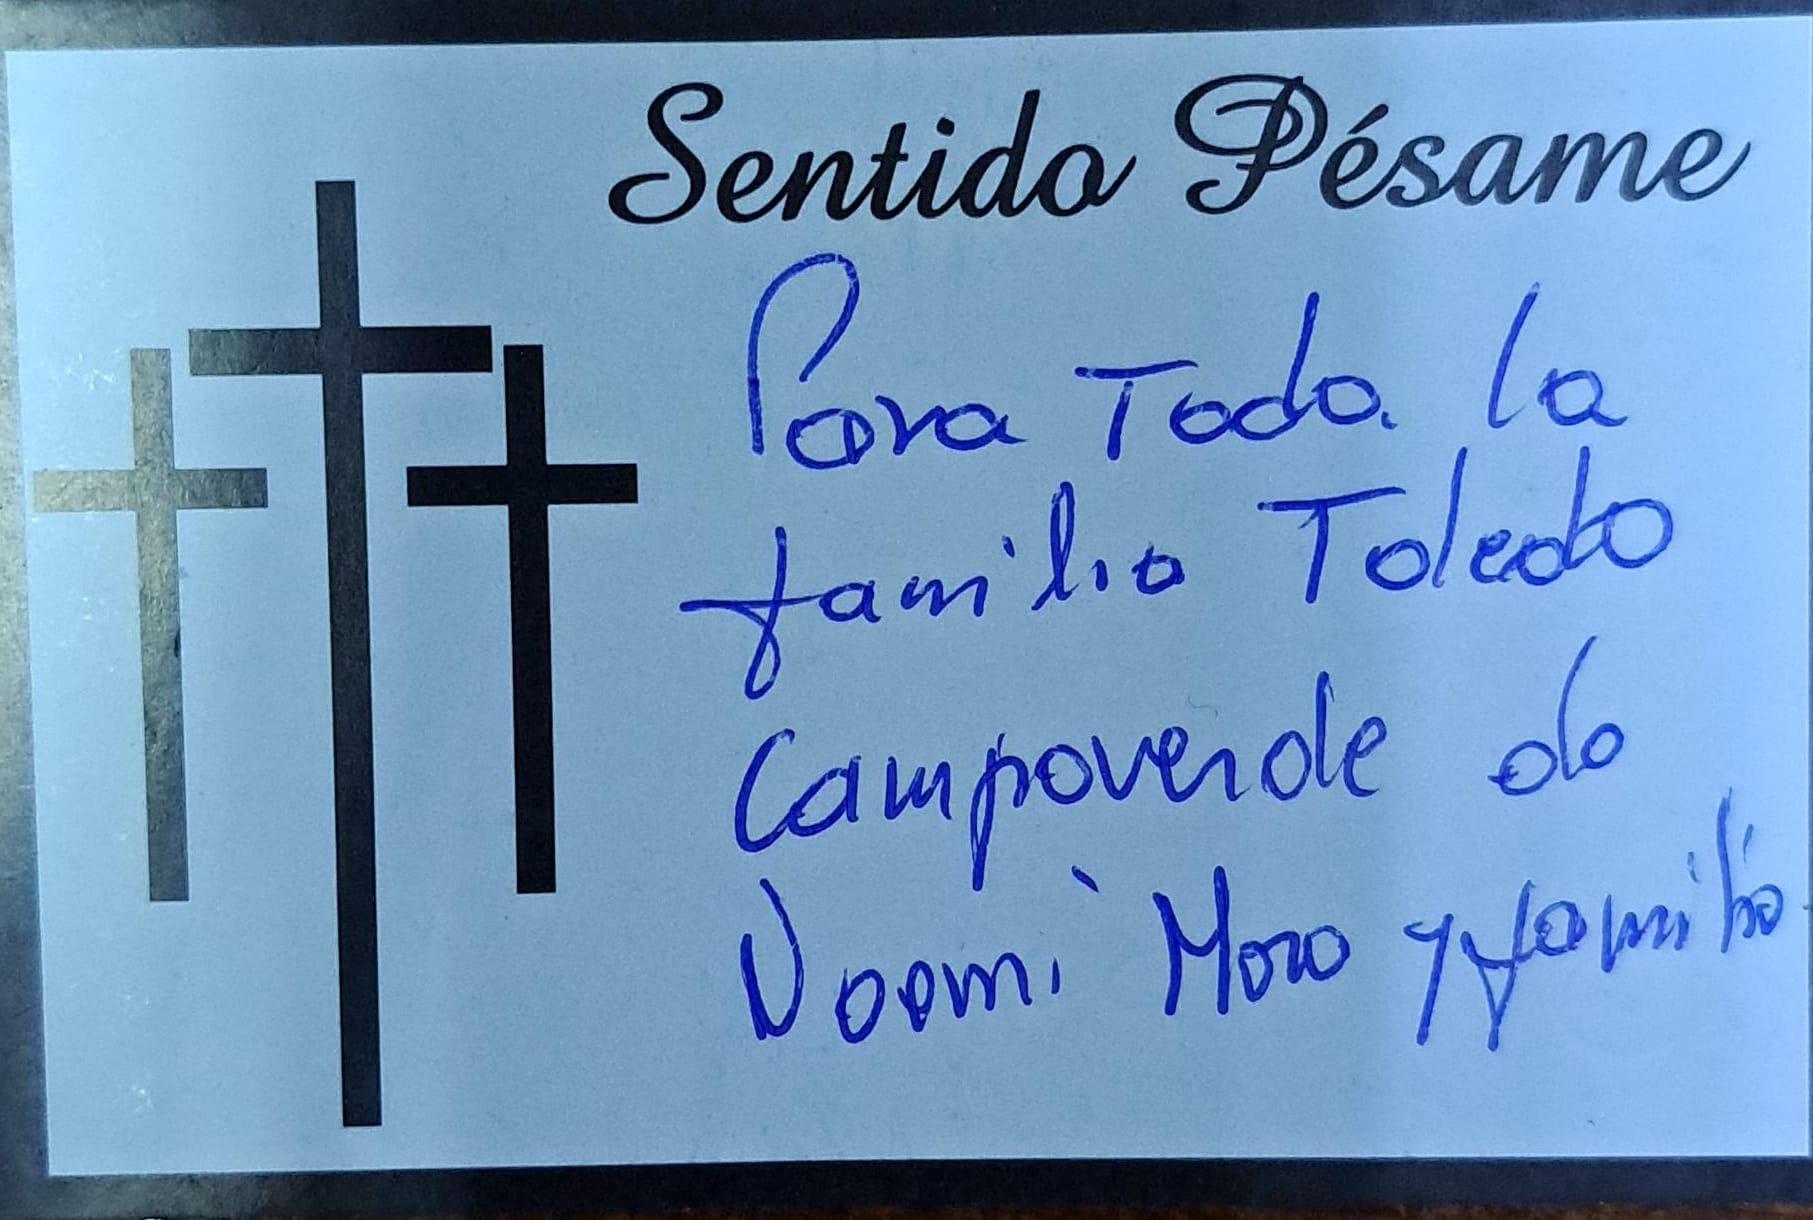 Sentido Pésame
Para Toda la
familia Toledo
Campoverde de
Noemi Moro y familia